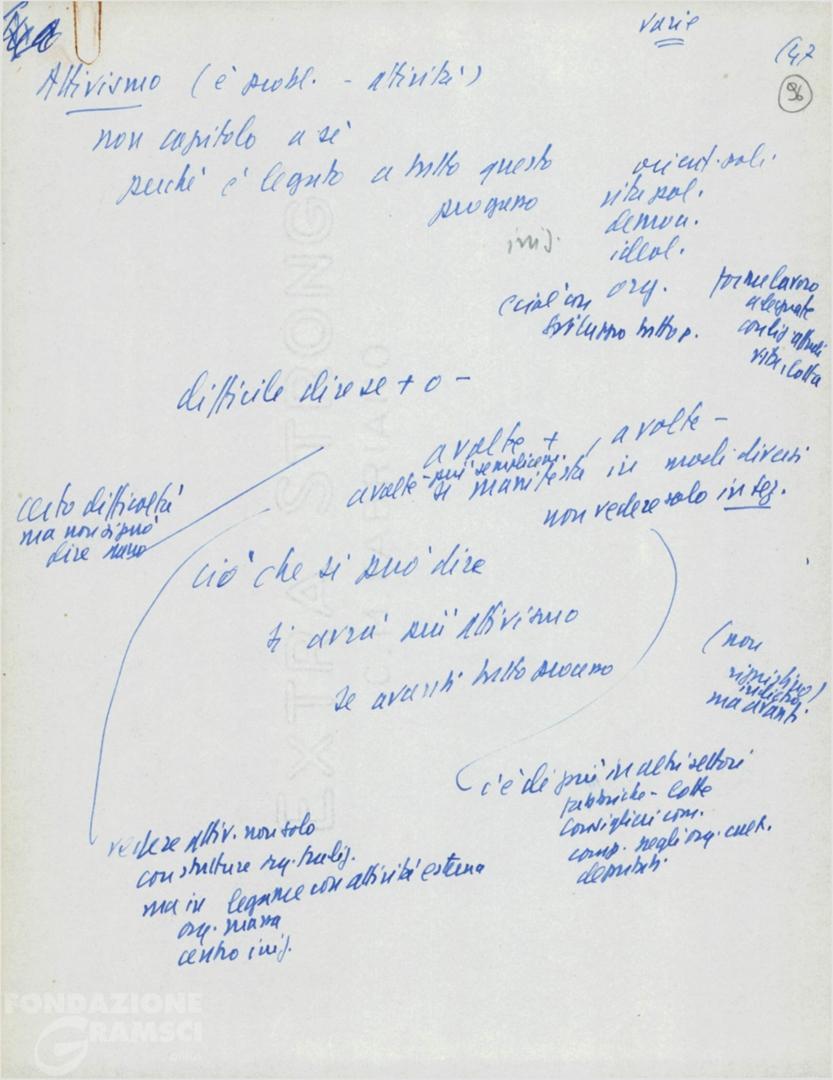 varie
(47
96
Attivismo (è probl. - attività)
non capitolo a sé
perché è legato a tutto questo
processo
orient. pol.
vita pol.
democr.
ideol.
iniz.
org.
(cioè con
sviluppo tutto p.
forme lavoro
adeguate
con lig. attuali
vita, lotta
difficile dire se + o -
a volte + , a volte -
a volte più semplicem.
si manifesta in modi diversi
non vedere solo in sez.
certo difficoltà
ma non si può
dire meno
ciò che si può dire
si avrà più attivismo
se avanti tutto processo
(non
indietro)
ma avanti
c'è di più in altri settori
fabbriche - lotte
consiglieri com.
comp. negli org. cult.
deputati
vedere attiv. non solo
con strutture org. tradiz.
ma in legame con attività esterna
org. massa
centro iniz.
EXTRA STRONG
FONDAZIONE
GRAMSCI